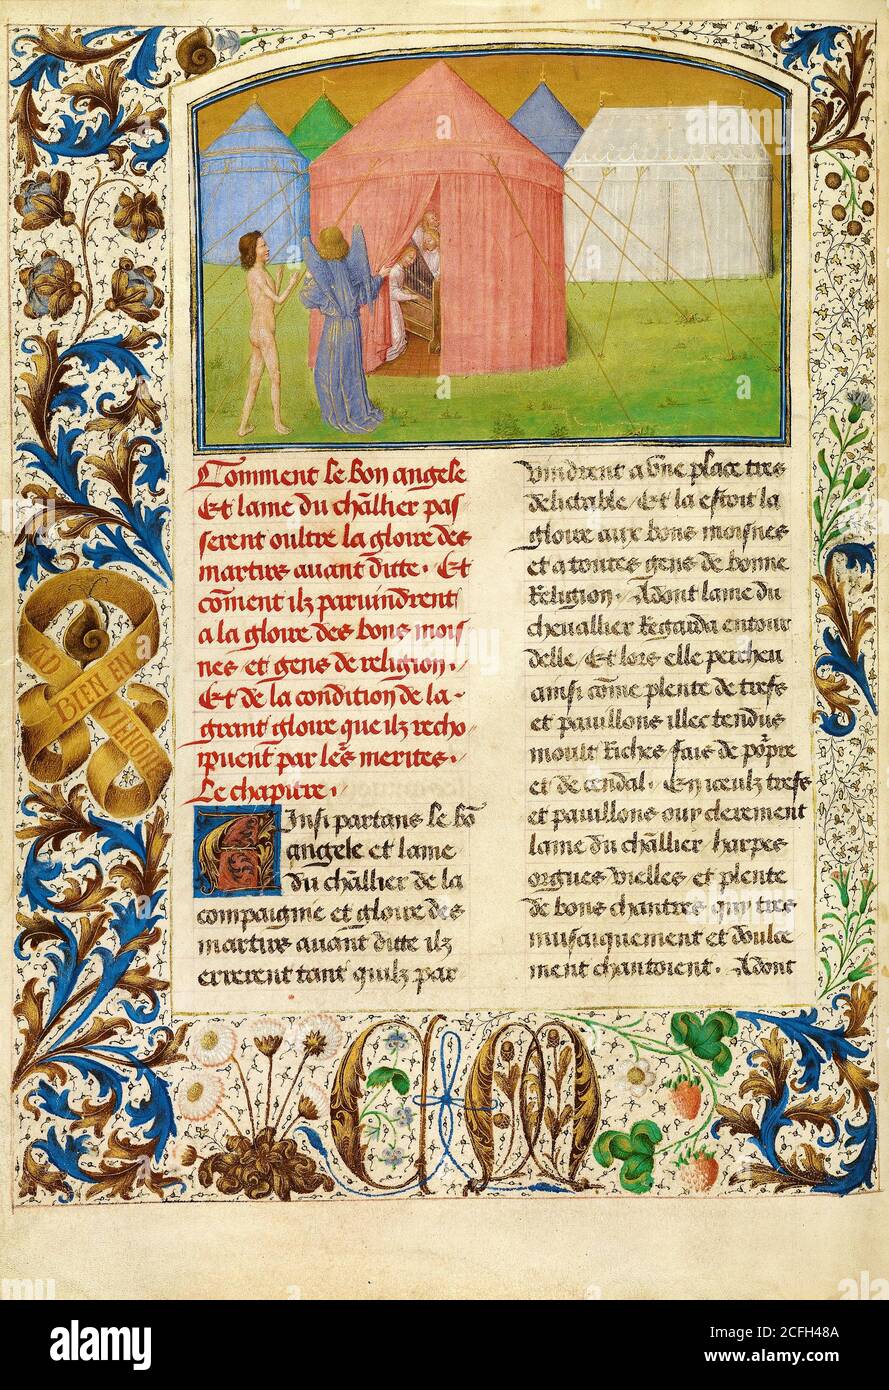 Comment le bon angele
Et lame du chãllier pas
serent oultre la gloire des
martirs auant ditte. Et
cõment ilz paruindrent
a la gloire des bons mois
nes et gens de religion.
Et de la condition de la
grant gloire que ilz recho
ipuent par les merites.
Le chapitre.
Ainsi partans le bõ
angele et lame
du chãllier de la
compaignie et gloire des
martirs auant ditte ilz
errerent tant quilz par
vindrent a vne place tres
delictable. Et la estoit la
gloire aux bons moisnes
et a toutes gens de bonne
Religion. Adont lame du
cheuallier Regarda entour
delle. Et lors elle percheu
ainsi cõme plente de trefs
et pauillons illec tendus
moult Riches fais de põpre
et de cendal. En iceulz trefs
et pauillons ouy clerement
lame du chãllier harpes
orgues vielles et plente
de bons chantres quy tres
musicquement et doulce
ment chantoient. Adont
BIEN EN
VIENGNE
CM
alamy
2CFH48A
www.alamy.com